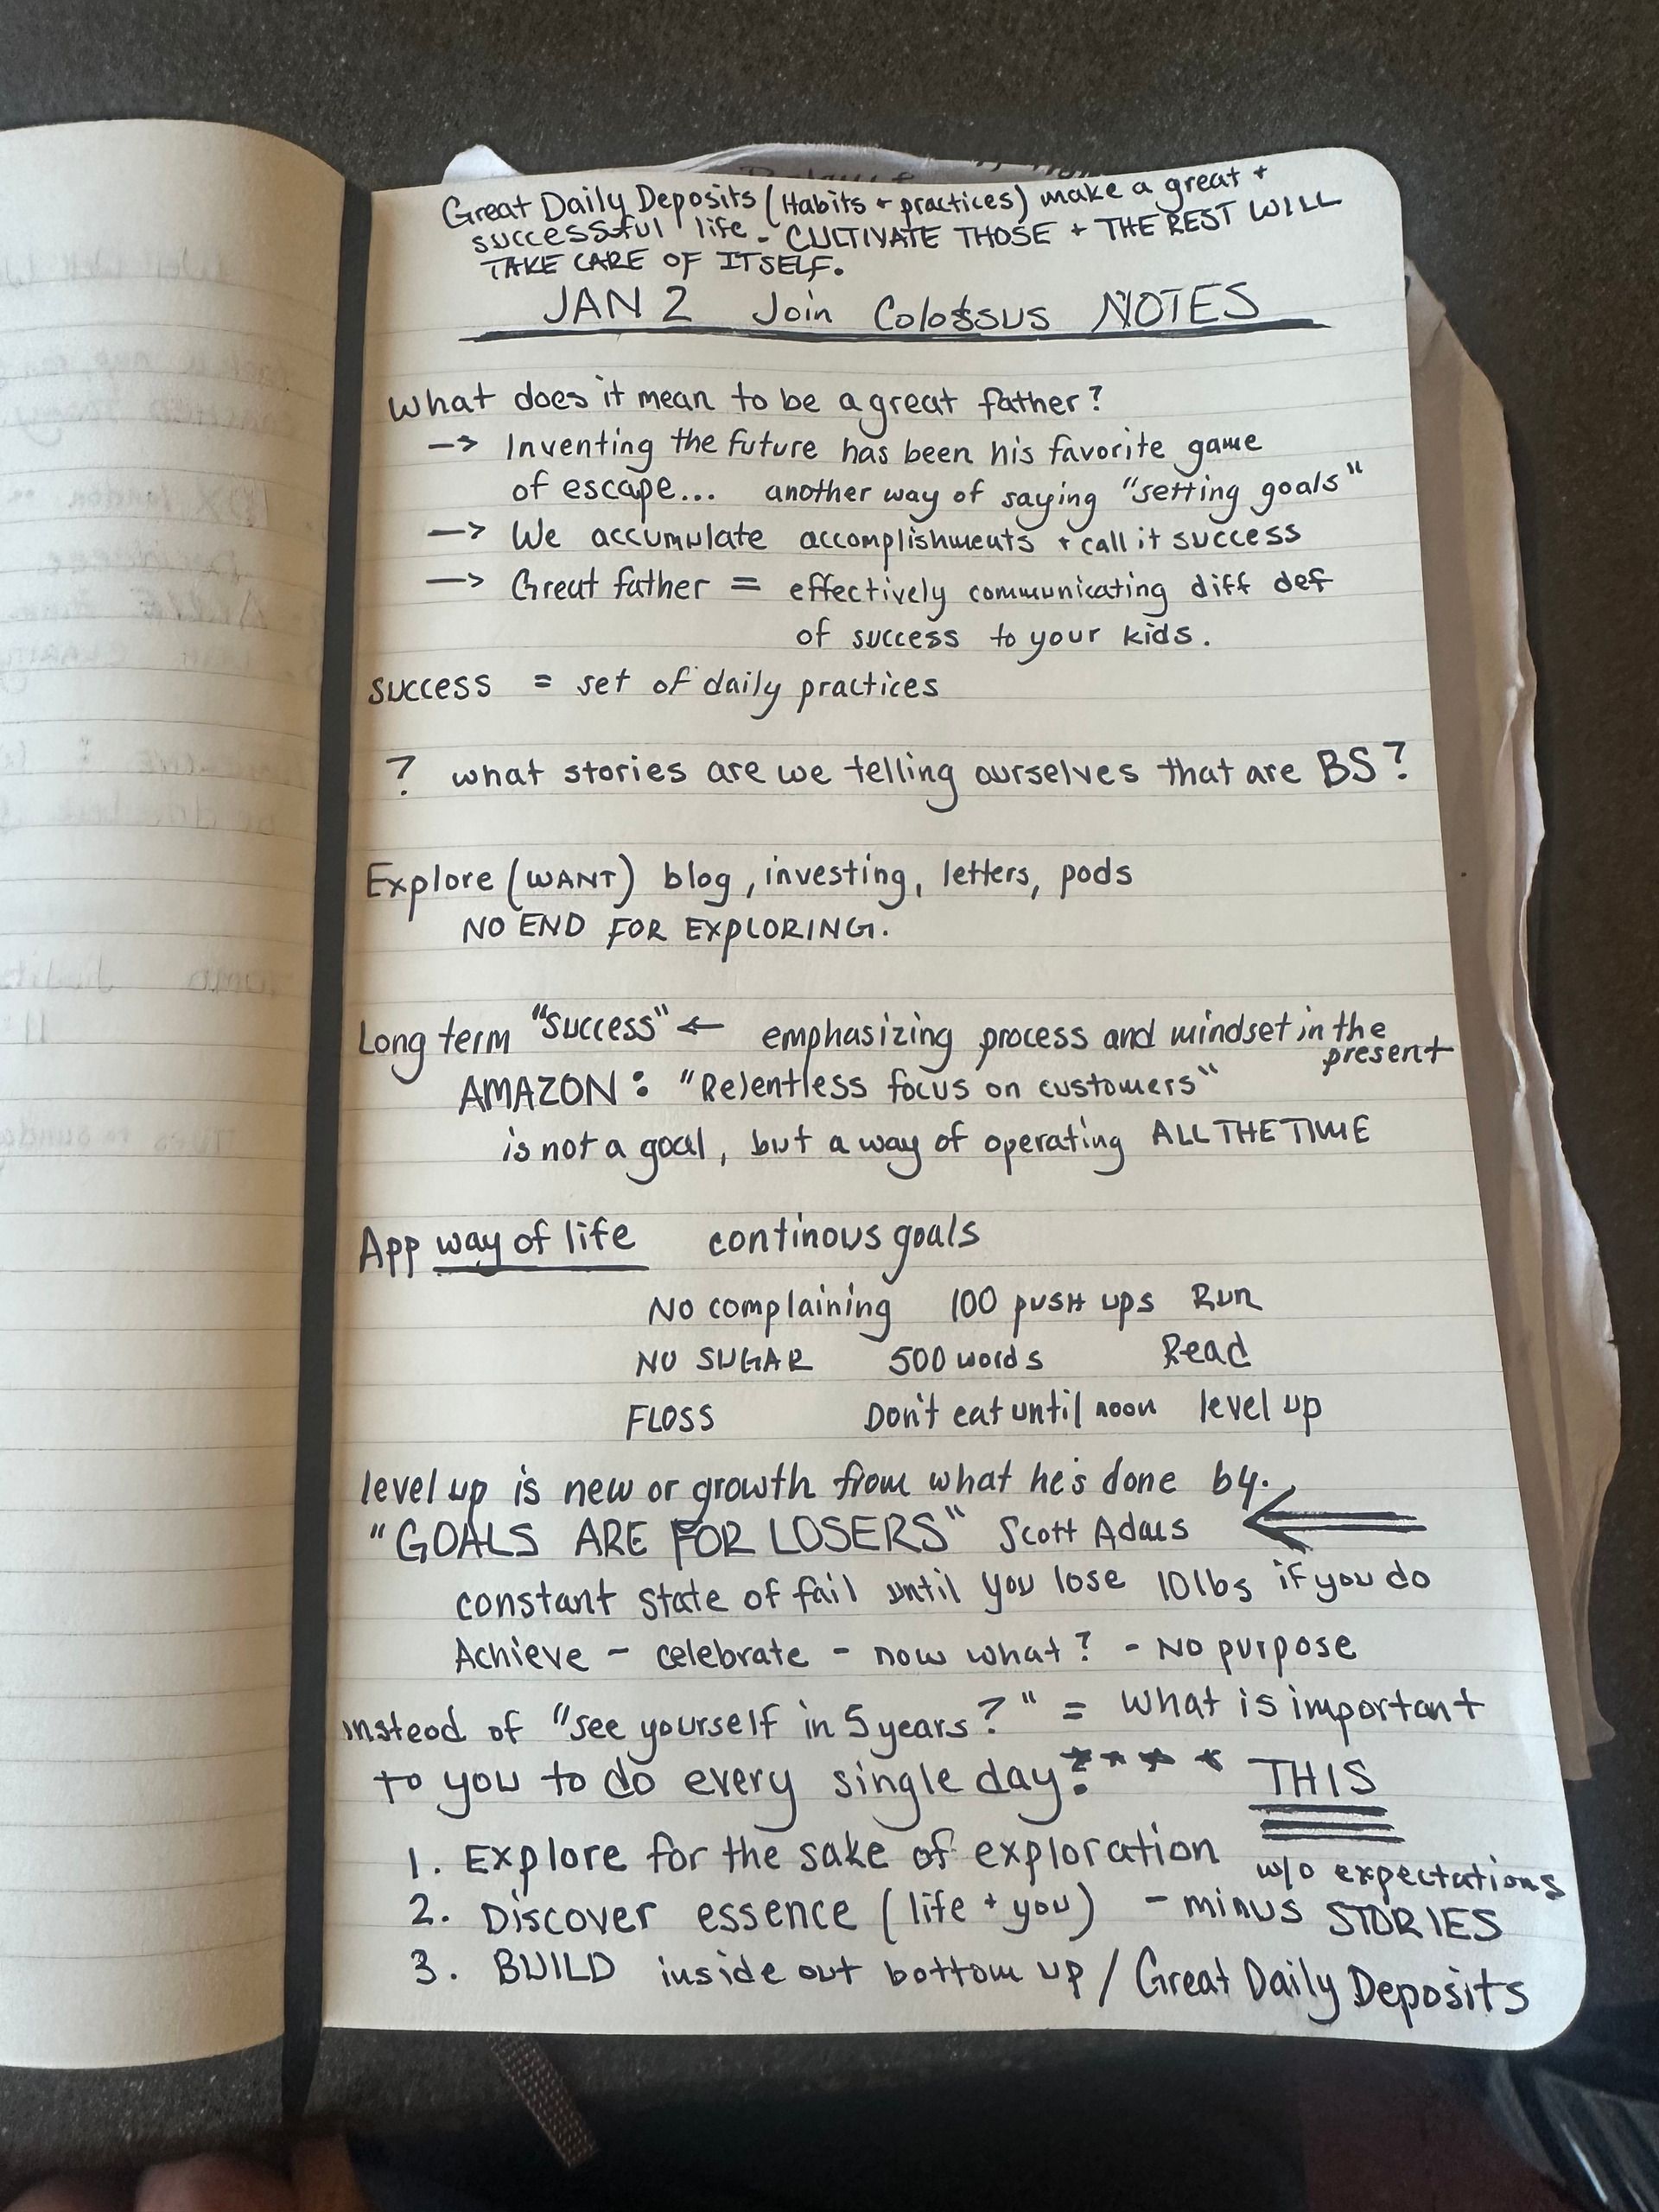 Great Daily Deposits (Habits + practices) make a great +
successful life. CULTIVATE THOSE + THE REST WILL
TAKE CARE OF ITSELF.
JAN 2 Join Colossus NOTES
What does it mean to be a great father?
→ Inventing the future has been his favorite game
of escape... another way of saying "setting goals"
→ We accumulate accomplishments + call it success
→ Great father = effectively communicating diff def
of success to your kids.
success = set of daily practices
? what stories are we telling ourselves that are BS?
Explore (WANT) blog, investing, letters, pods
NO END FOR EXPLORING.
Long term "success" ← emphasizing process and mindset in the
present
AMAZON: "Relentless focus on customers"
is not a goal, but a way of operating ALL THE TIME
App way of life continous goals
No complaining 100 push ups Run
NO SUGAR 500 words Read
FLOSS Don't eat until noon level up
level up is new or growth from what he's done b4.
"GOALS ARE FOR LOSERS" Scott Adams ⇐
constant state of fail until you lose 10lbs if you do
Achieve - celebrate - now what? - No purpose
instead of "see yourself in 5 years?" = What is important
to you to do every single day? **** THIS
1. Explore for the sake of exploration w/o expectations
2. Discover essence (life + you) - minus STORIES
3. BUILD inside out bottom up / Great Daily Deposits